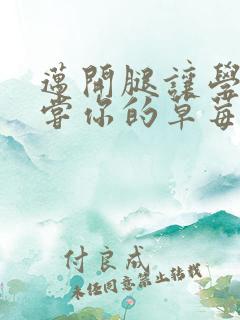 邁開腿讓學
嘗你的草莓
付良成
未經同意禁止轉載